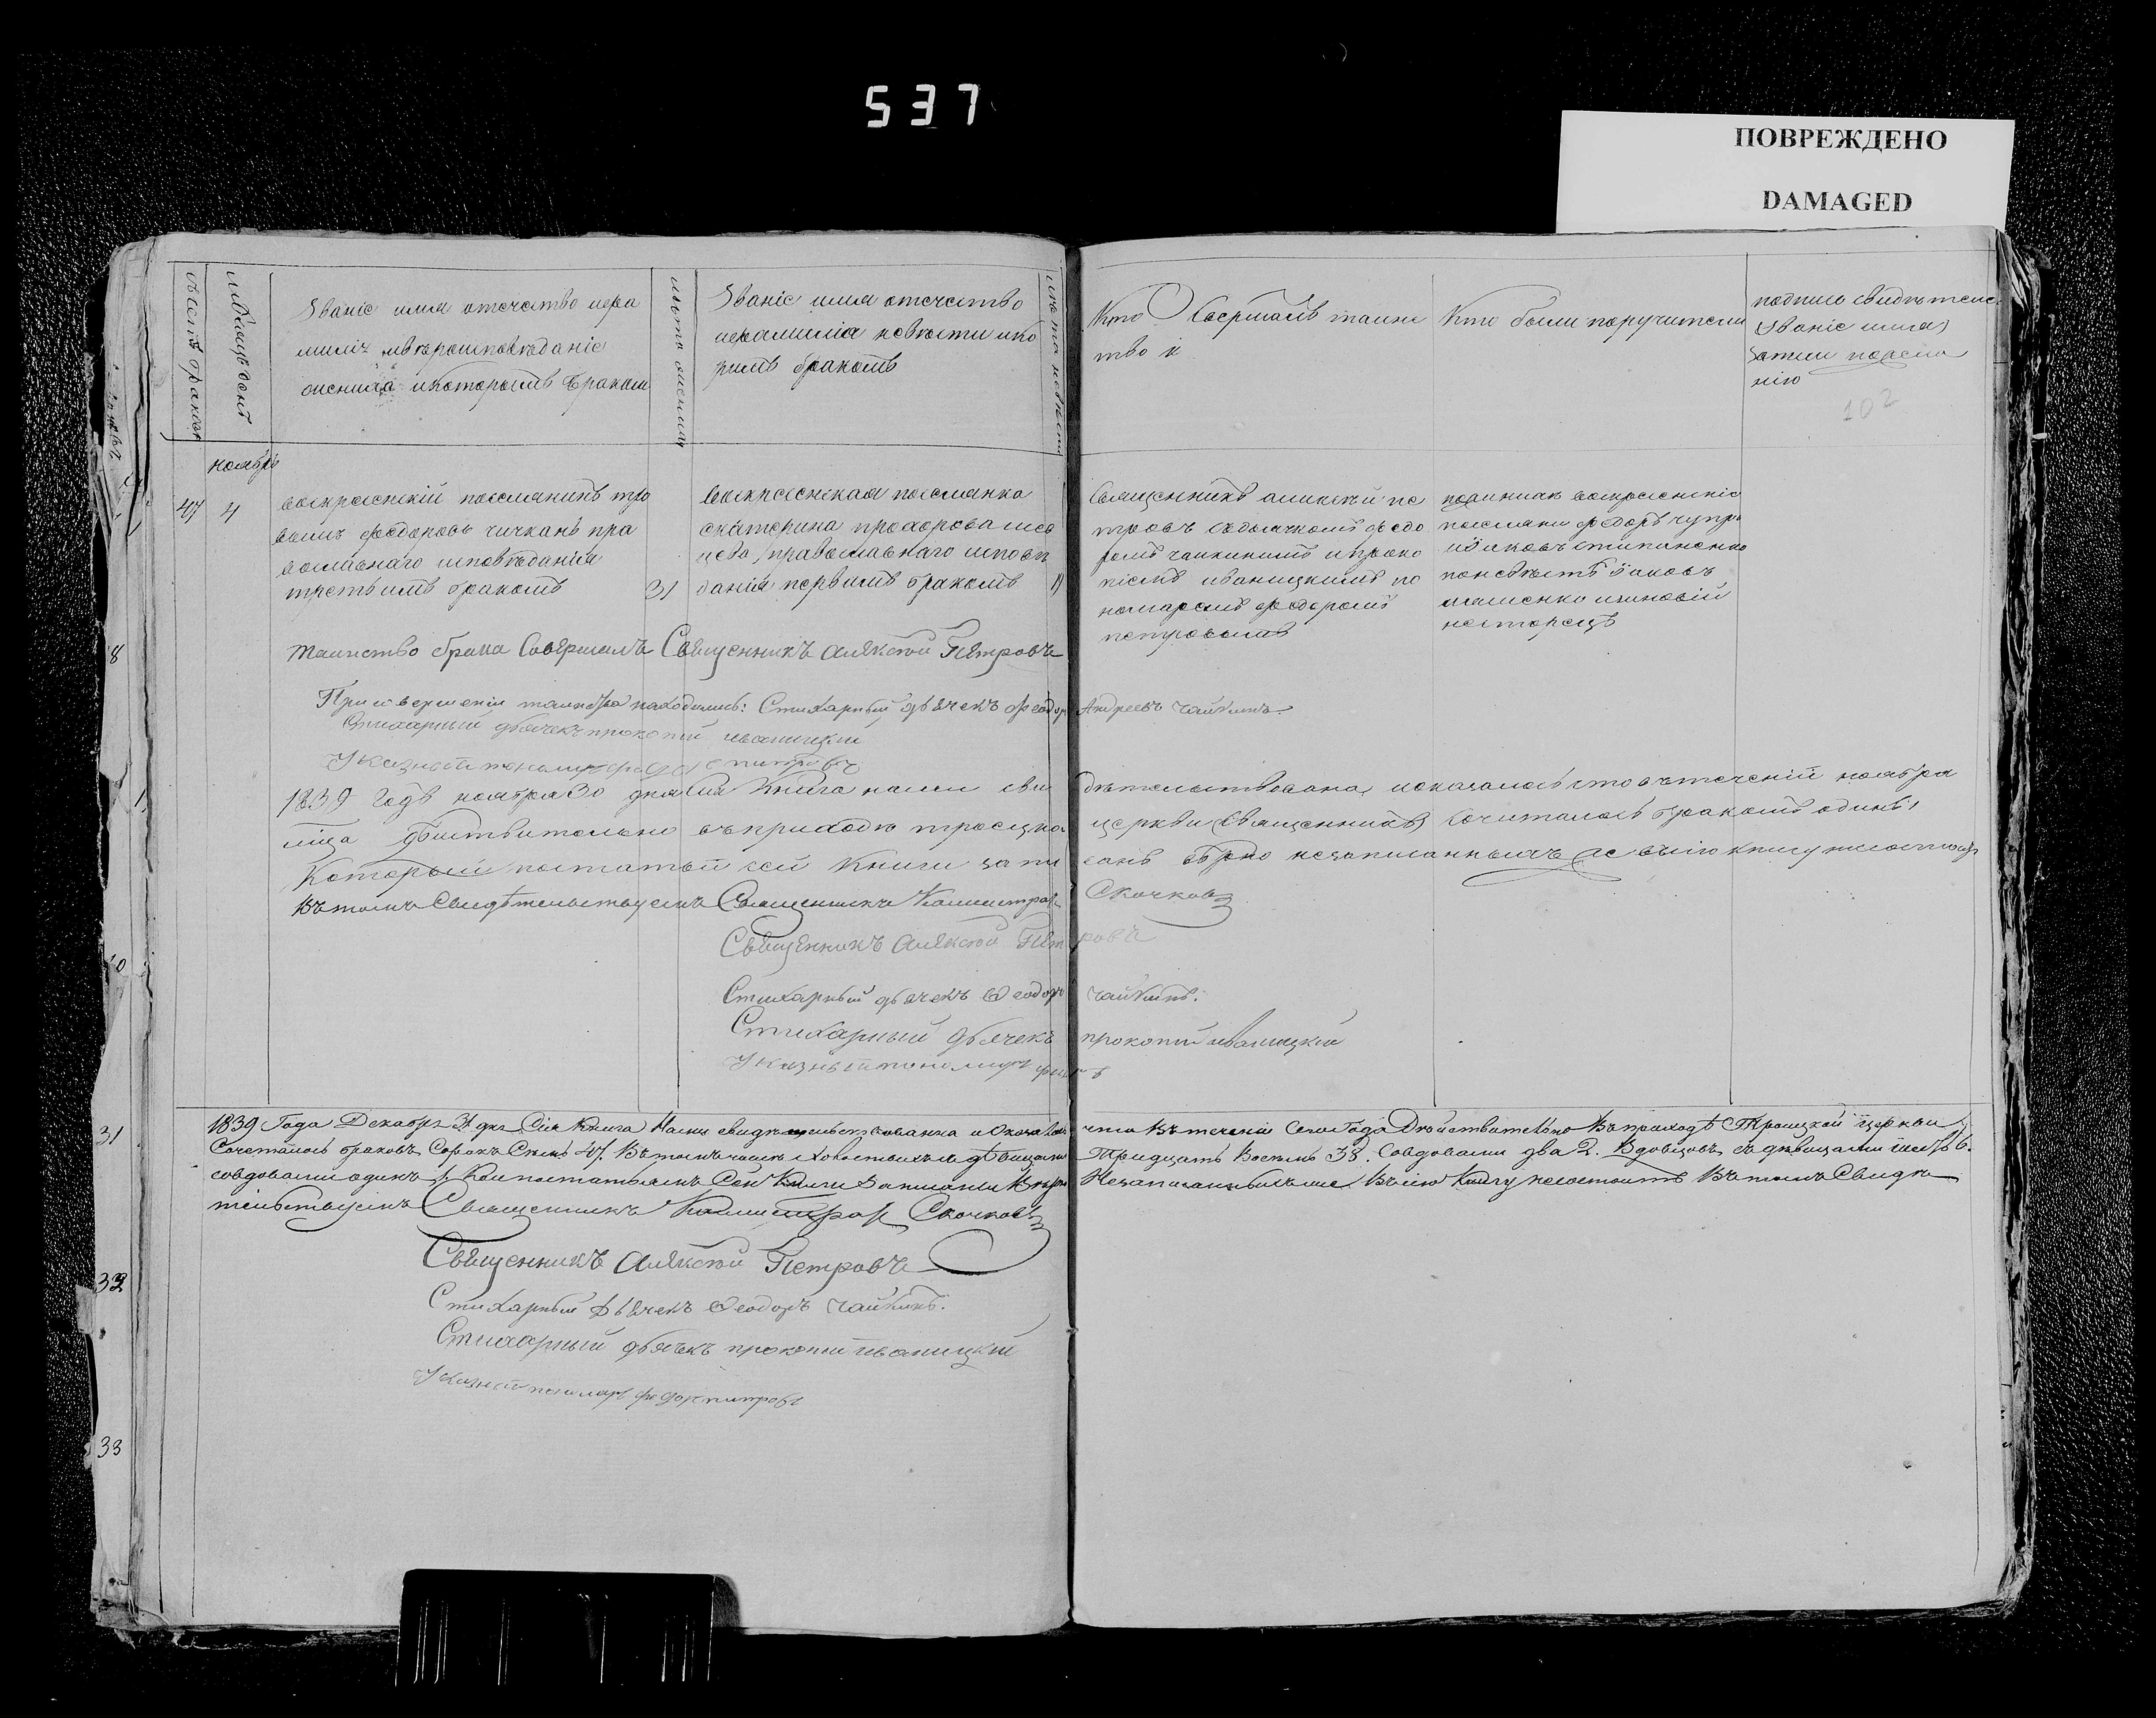 537
ПОВРЕЖДЕНО
DAMAGED
Званіе имя отечество и фа
миліи
жениха и которымъ бракомъ
Званіе имя отечество
и фамилія невѣсти и ко
римъ бракомъ
Кто совершалъ таинс
тво
Кто были поручители
подпись свидѣтеле
(званіе имя)
102
ноябрь
47 4
воскресенскій поселянинъ тро
фимъ федоровъ чичканъ пра
вославнаго исповѣданія
третьимъ бракомъ
31
воскресенская поселянка
екатерина прохорова
православнаго исповѣ
данія первимъ бракомъ
Священникъ алексѣй пе
тровъ съ дьячкомъ федо
ромъ чайкинымъ и проко
піемъ иваницкимъ по
номаремъ федоромъ
петровымъ
воскресенскіе
поселяни федоръ
и яковъ степаненко
по невѣстѣ яковъ
и зиновій
Таинство брака Совершалъ Священникъ Алексѣй Петровъ
При совершеніи таинства находились: Стихарный дьячекъ Феодоръ Андреевъ Чайкинъ.
Стихарный дьячекъ прокопій иваницкій
Указный пономарь федоръ питровъ
1839 годъ ноября 30 дня сія Книга нами сви дѣтельствована и оказалось что въ теченій ноября
мца дѣйствительно въ приходѣ троецкой церкви (священникъ) сочиталось бракомъ одинъ 1
Который по статьѣ сей Книги запи санъ вѣрно незаписанныхъ же въ сію книгу
Въ томъ Свидѣтельствуемъ Священникъ Калистратъ Скочковъ
Священникъ Алексѣй Петровъ
Стихарный дьячекъ Феодоръ Чайкинъ.
Стихарный дьячекъ прокопій иваницкій
Указный пономарь
1839 Года Декабря 31 дня Сія Книга Нами свидѣтельствованна и Оказалось что Въ теченіи Сего Года Дѣйствительно Въ приходѣ Троицкой церкви
Сочеталось браковъ Сорокъ Семь 47. Въ томъ числѣ Холостыхъ съ дѣвицами Тридцать Восемь 38. Совдовами два 2. Вдовцовъ съ дѣвицами шесть 6.
совдовами одинъ 1. Кои по статьямъ Сей Книги Записаны Вѣрно Незаписанныхъ же Въ сію Книгу несостоитъ Въ томъ Свидѣ
тельствуемъ Священникъ Калистратъ Скочковъ
Священникъ Алексѣй Петровъ
Стихарный Дьячекъ Феодоръ Чайкинъ.
Стихарный дьячекъ прокопій иваницкій
Указной пономарь федоръ питровъ
8
31
33
33